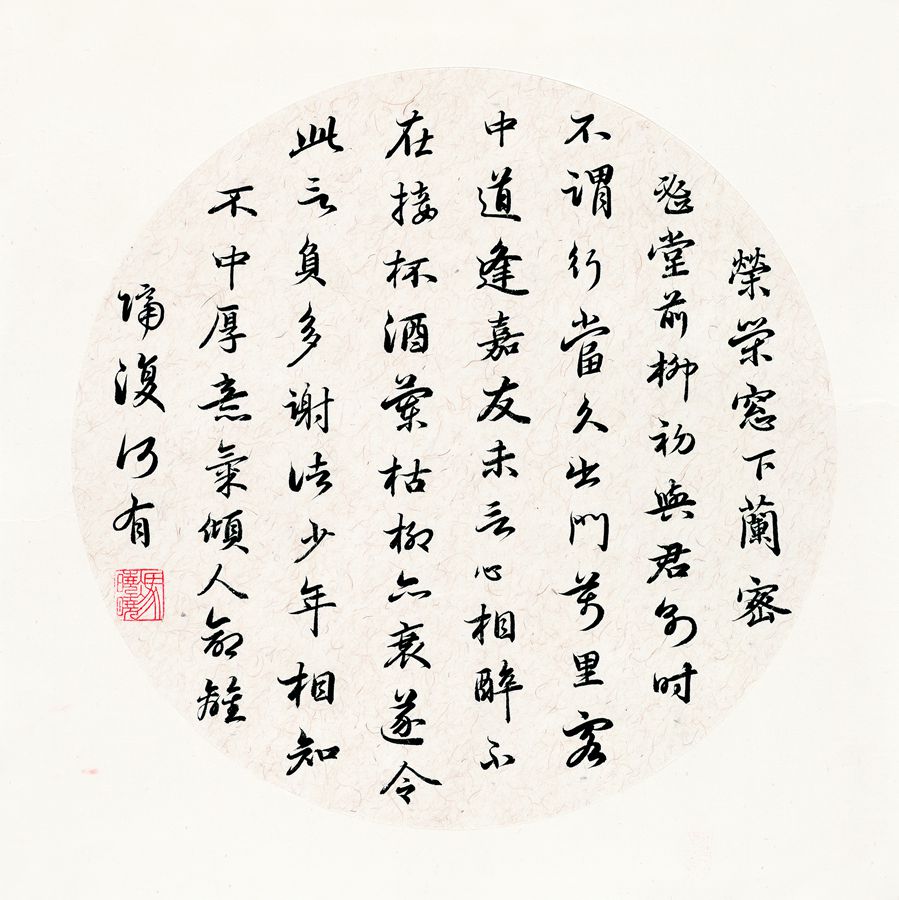 榮榮窓下蘭密
密堂前柳初與君別時
不謂行當久出門萬里客
中道逢嘉友未言心相醉不
在接杯酒蘭枯柳亦衰遂令
此言負多謝諸少年相知
不中厚意氣傾人命離
隔復何有